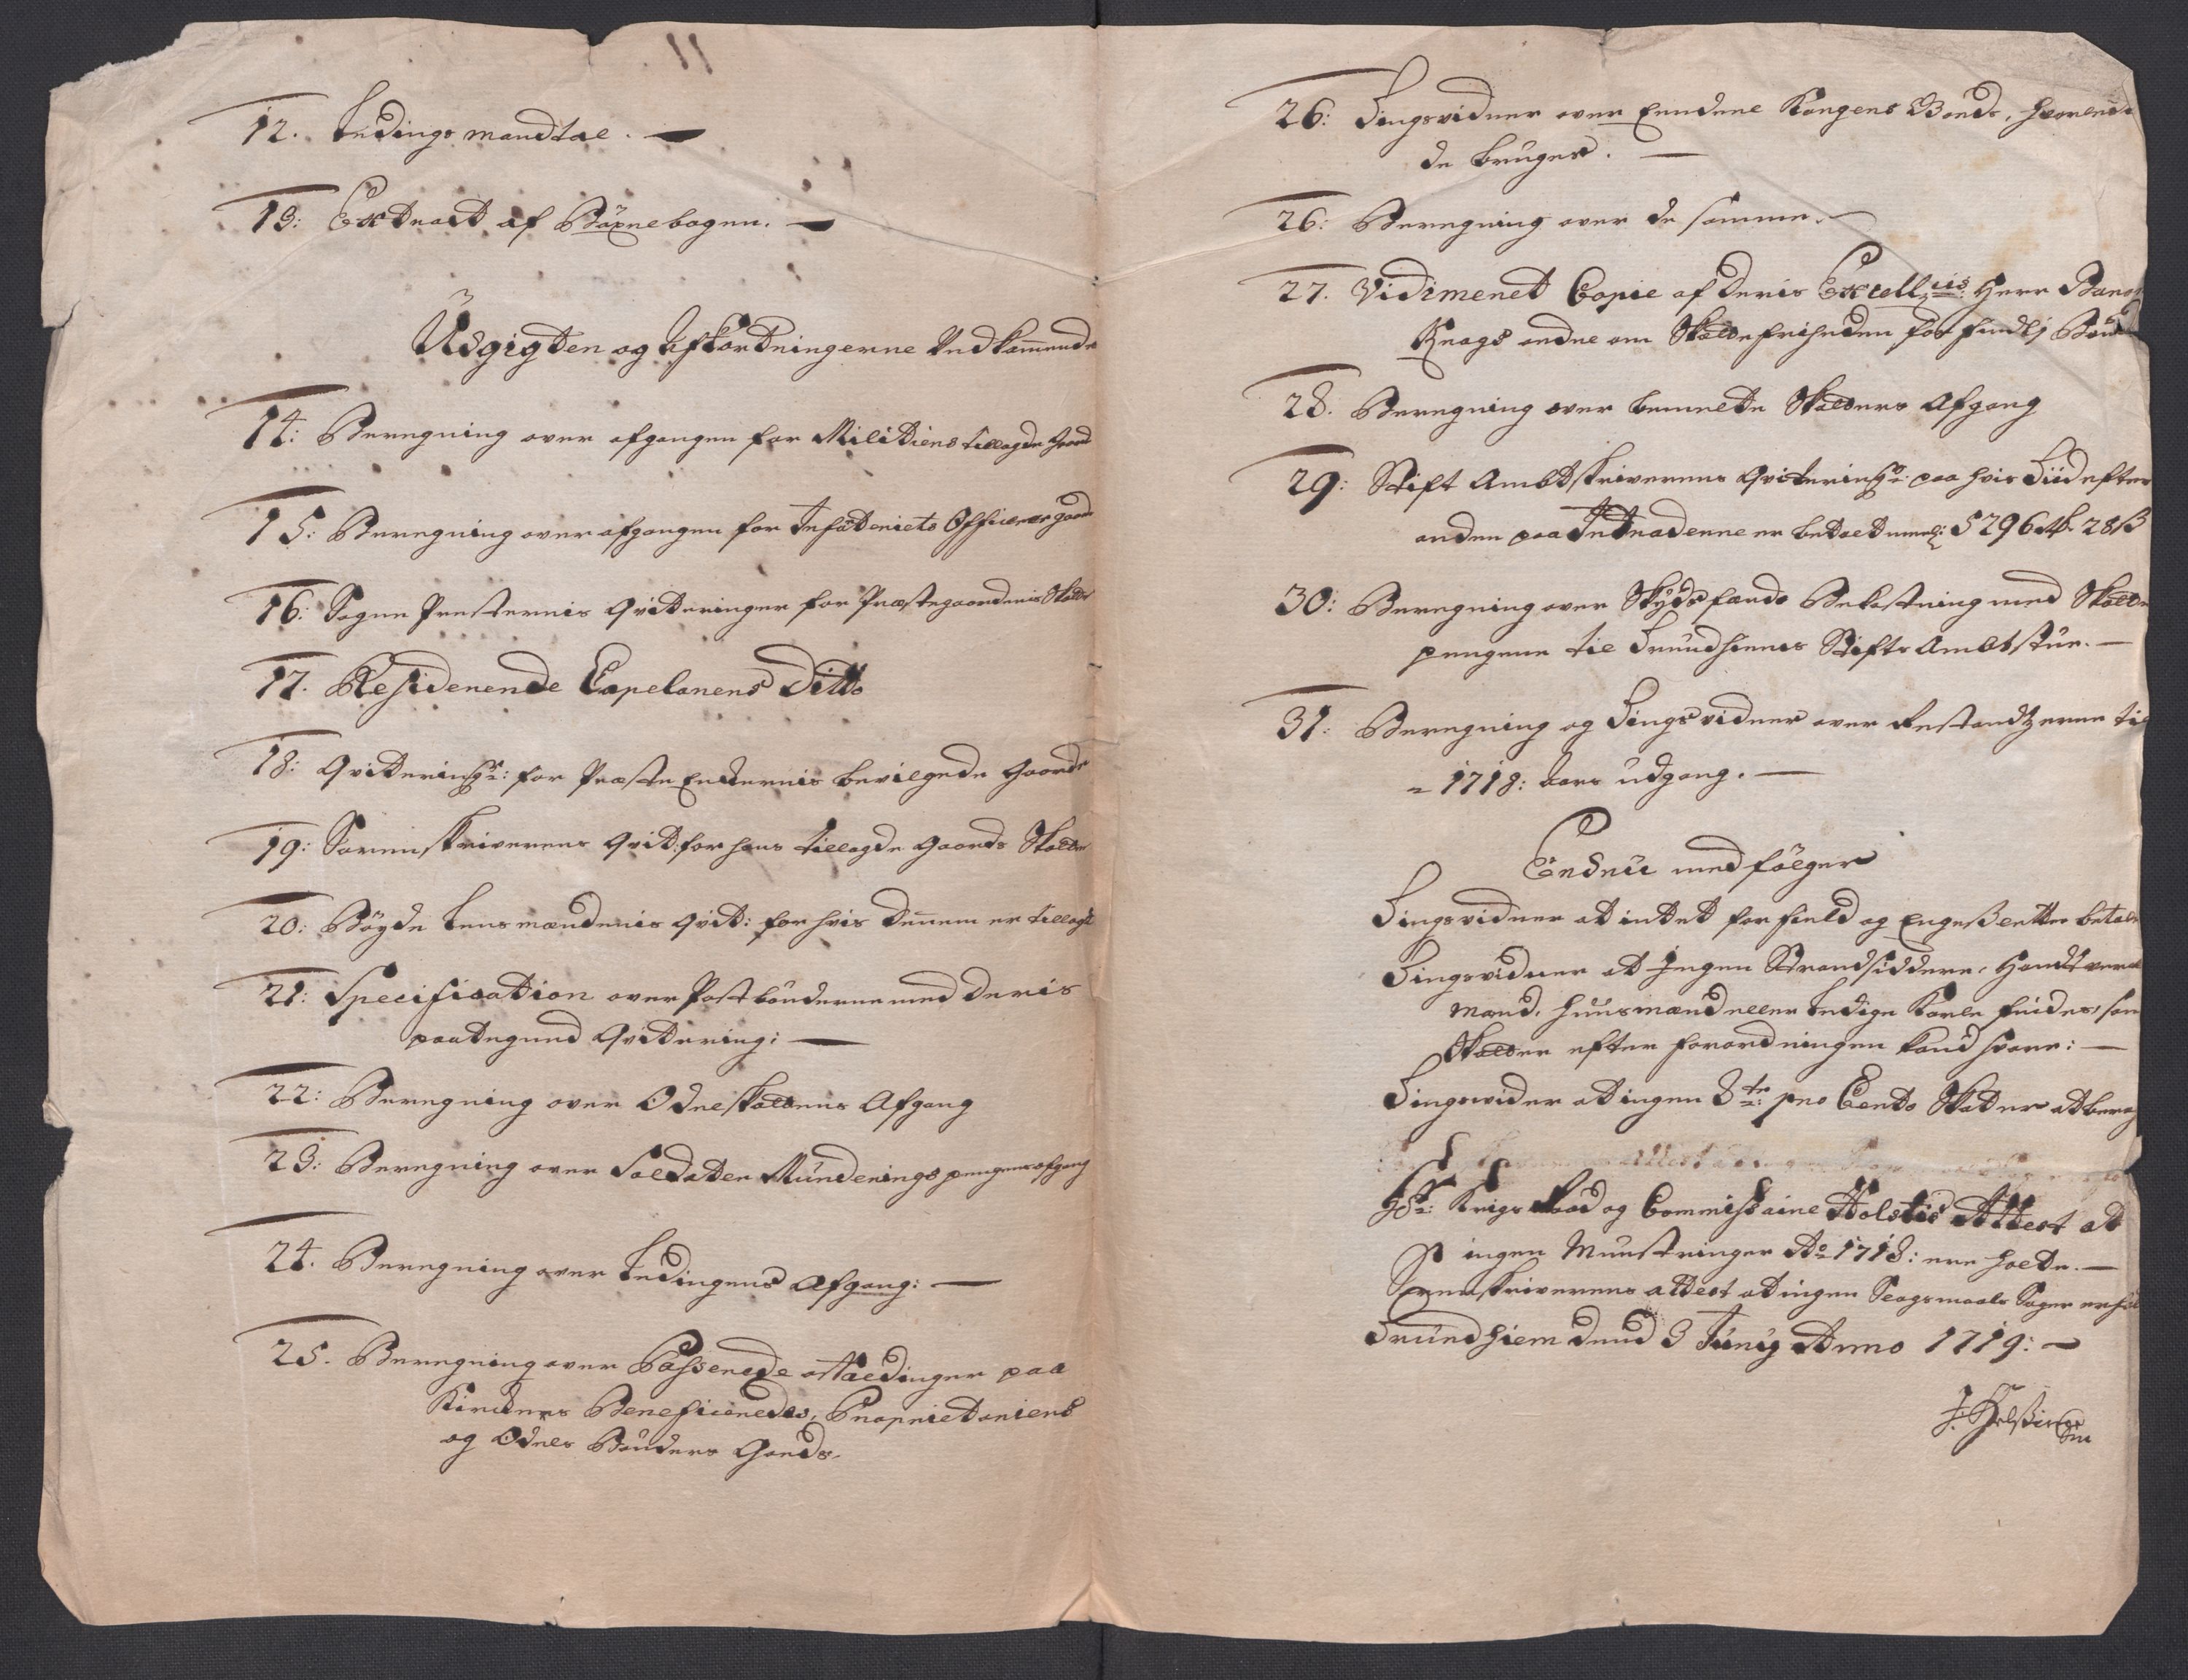 12. Ledings mandtal. —
13: Extract af Böxnebogen. —
Udgigten og Afkortningerne Vedkommende
14: Beregning over afgangen for Militiens tillagde Gaard
15: Beregning over afgangen for Infanteriets Officerer gaard
16: Sogne Presternis Qvitteringer for Præstegaardenis Skatter
17. Residerende Capelanens Ditto
18: Qvittering: for Præste Enckernis bevilgede Gaarde
19: Sorenskriverens Qvit: for hans tillagde Gaards Skatter
20: Böyde Lensmændenis Qvit: for hvis dennem er tillagt
21: Specification over Postbönderne med deris
paategned Qvittering: —
22: Beregning over Odelskattens Afgang
23: Beregning over Soldater Munderings pengenes afgang
24. Beregning over Ledingens Afgang: —
25. Beregning over Passerede aftældinger paa
Kirckens Beneficerede, Proprietariens
og Odels Bönders Gods.
26: Tingsvidner over Kongens Gods,
de bruges. —
26: Beregning over de samme. —
27. Vidimeret Copie af Deris Excell: Herr
Krags ordre om Skattefriheden for
28. Beregning over bemelte Skatters Afgang
29: Stift Ambtskriverens Qvitering: paa hvis Tiid efter
anden paa Intraderne er betalt 5296 28 ß
30: Beregning over Skyds færds Bekostning med Skatte
pengene til Trundhiems Stifts Ambtstue. —
31: Beregning og Tingsvidner over Restandzerne til
1718: Aars udgang. —
Endnu medfölger
Tingsvidner at intet for field og Engesletter betales
Tingsvidner at Ingen Strandsiddere, Handtvercks
mænd, huusmænd eller Ledige Karle findes, som
Skatter efter forordningen kand svare: —
Tingsvidner at ingen pro Cento Skatter at bereg
Hr: Krigs Raad og Commissaire Holstis Attest at
ingen Munstringer Ao 1718: ere holte. —
Sorenskriverens attest at ingen Sager er
Trundhiem dend 3 Junij Anno 1719: —